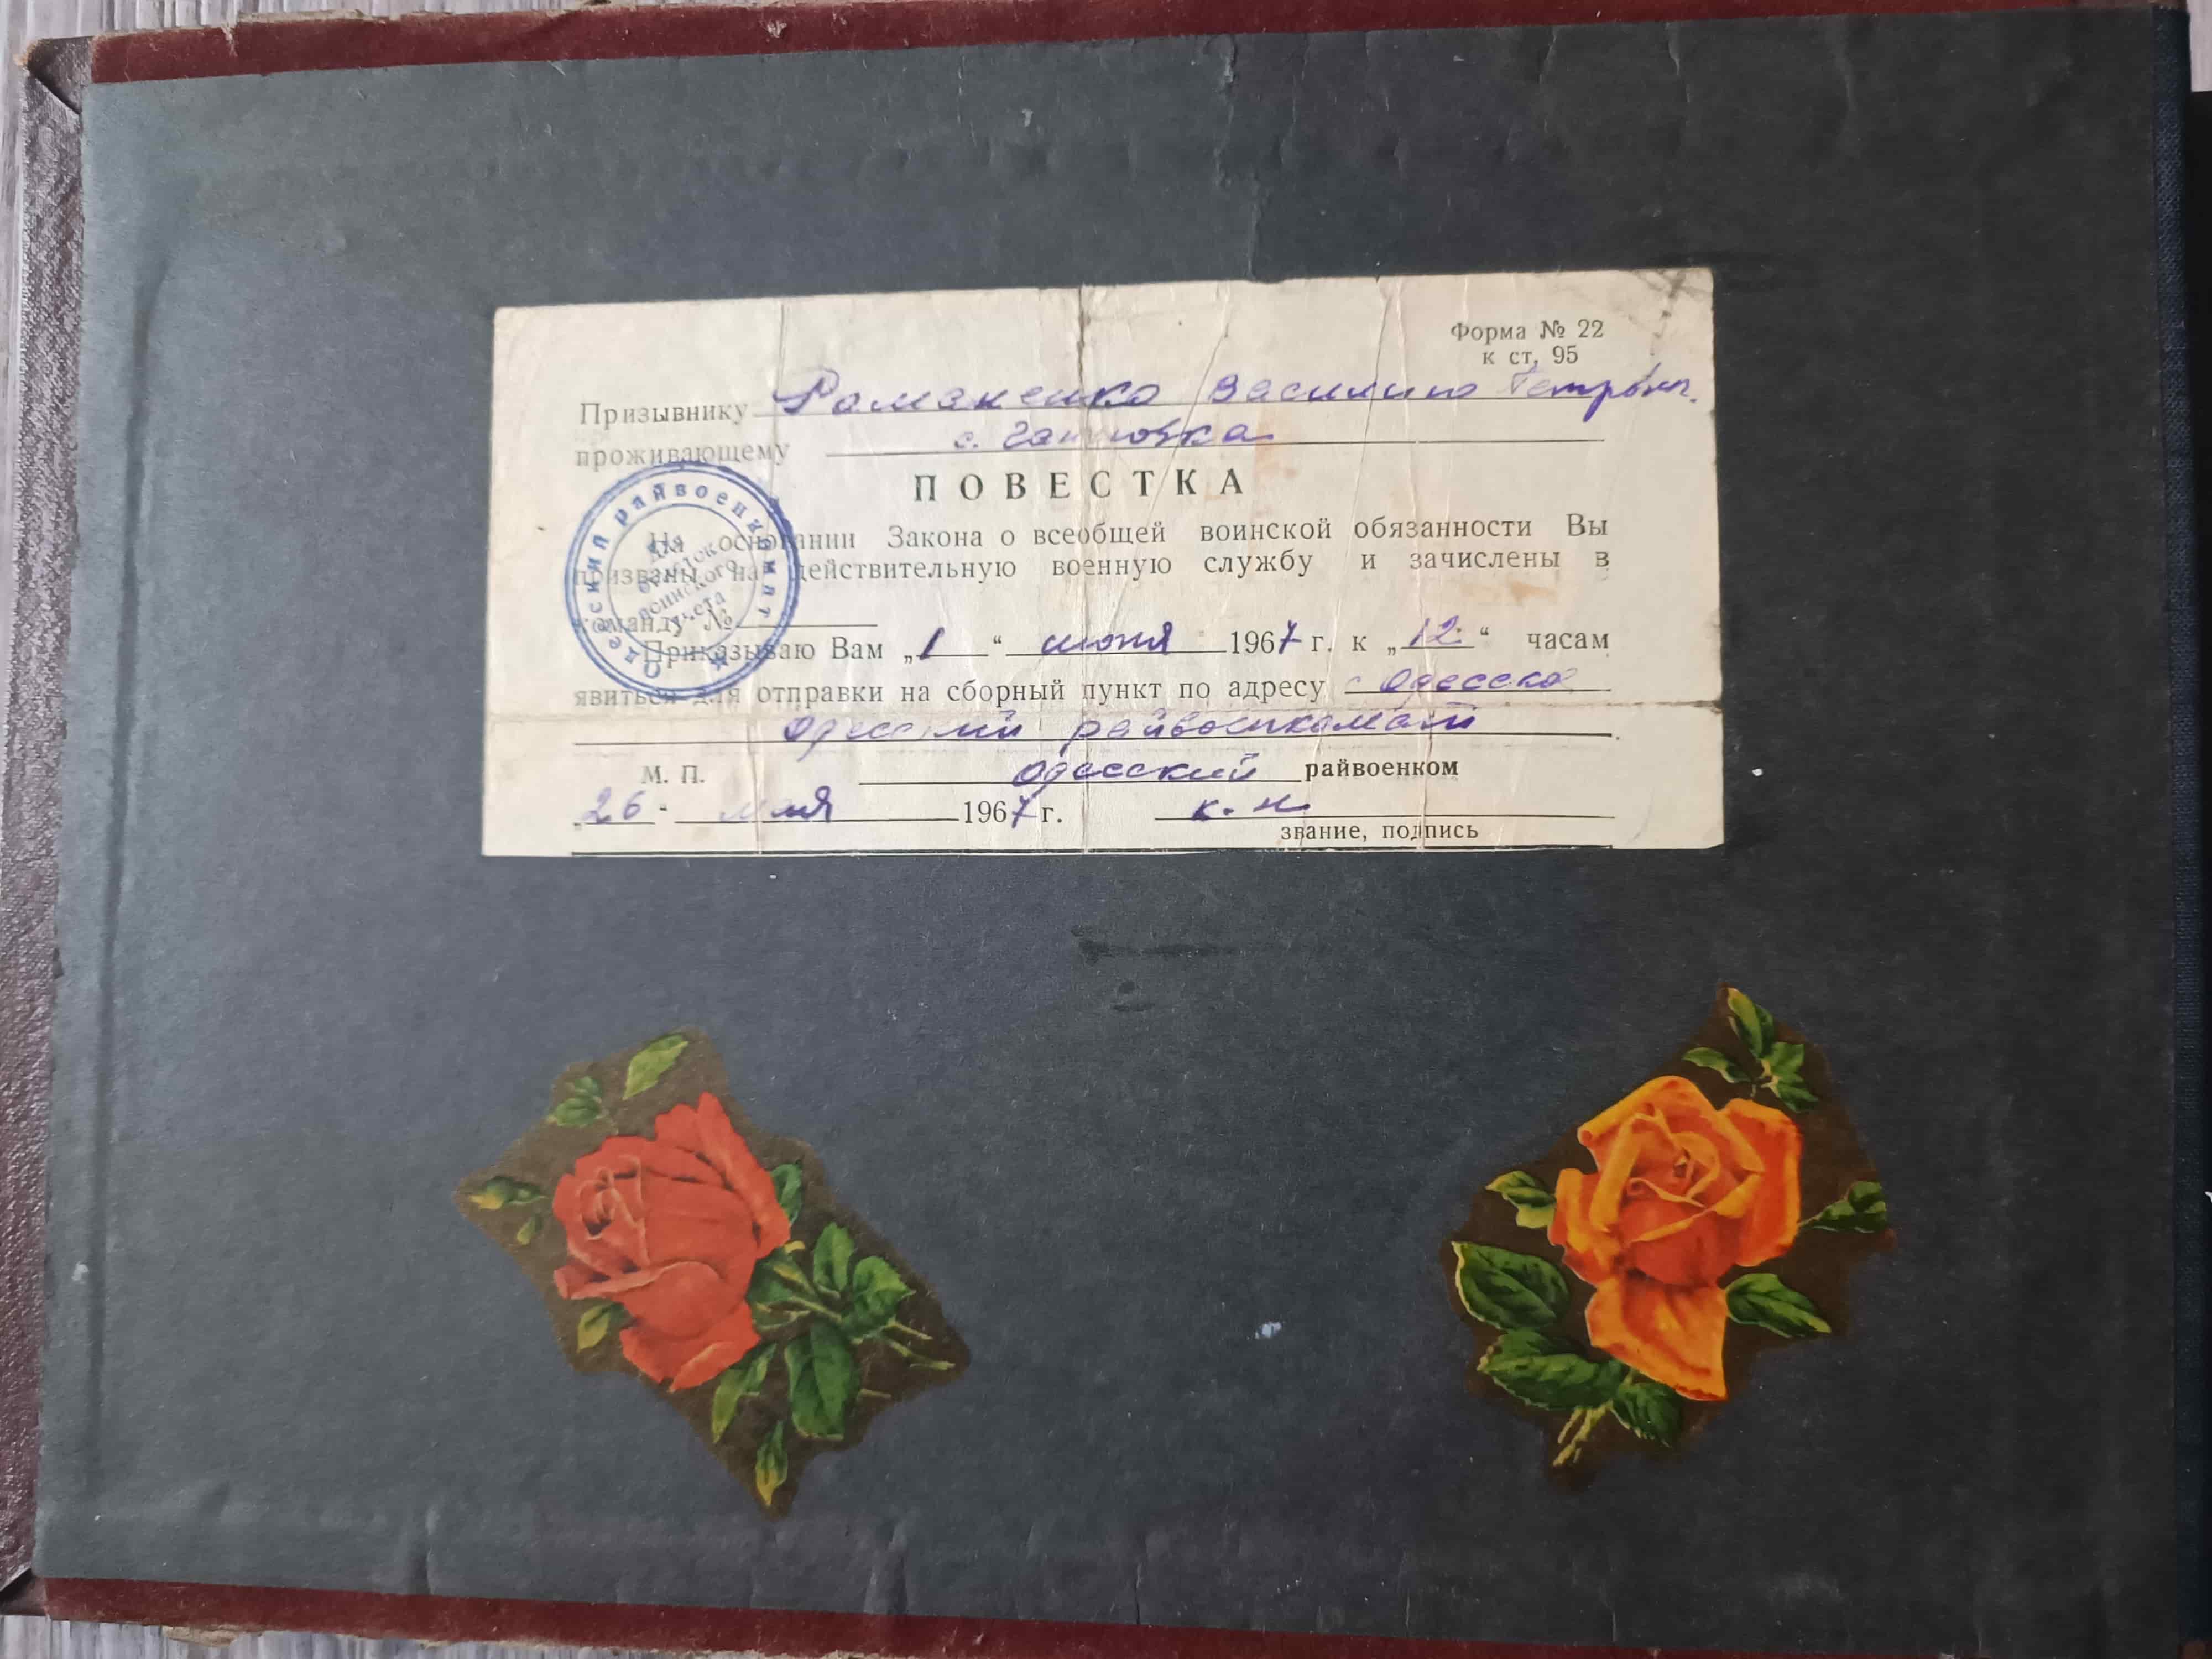 Форма № 22
к ст, 95
Призывнику Романенко Василию
проживающему с.
ПОВЕСТКА
На основании Закона о всеобщей воинской обязанности Вы
призваны на действительную военную службу и зачислены в
команду №
Приказываю Вам „1“ июня 1967 г. к „12“ часам
явиться для отправки на сборный пункт по адресу с Одесское
Одесский райвоенкомат
М. П. Одесский райвоенком
„26 - мая 1967 г. к. н
звание, подпись
Одесский райвоенкомат
воинского
учета